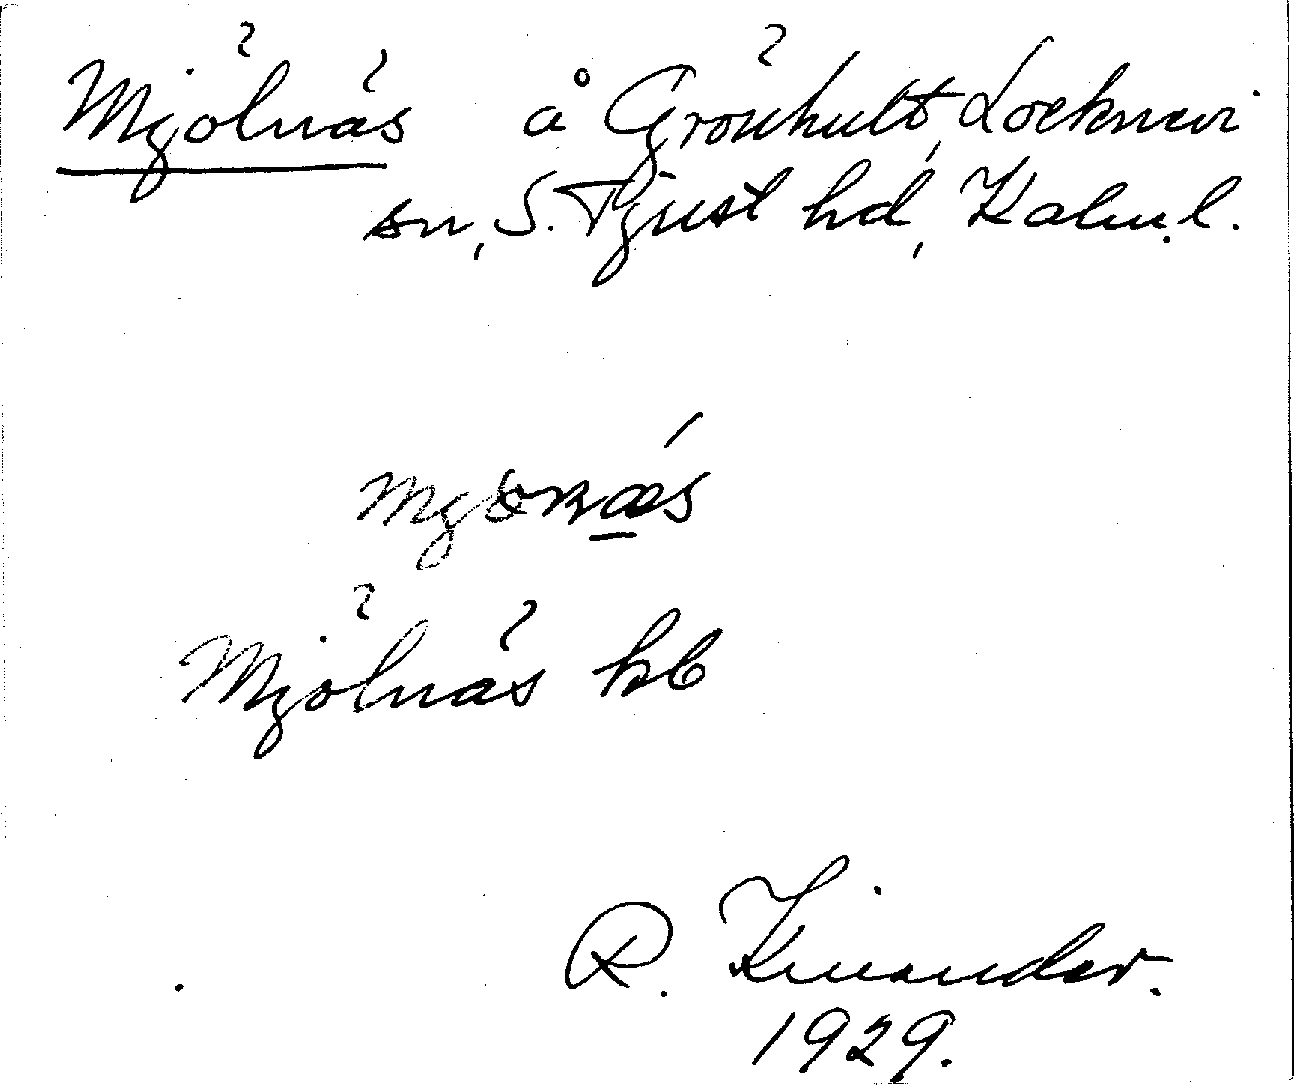 Mjölnäs å Grönhult, Locknevi
sn, S. Tjust hd, Kalm. l.
mjønæs
Mjölnäs kb
R. Kinander.
1929.